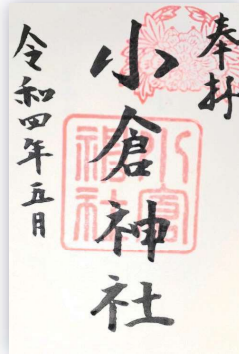 奉拝
小倉神社
小倉神社
令和四年五月